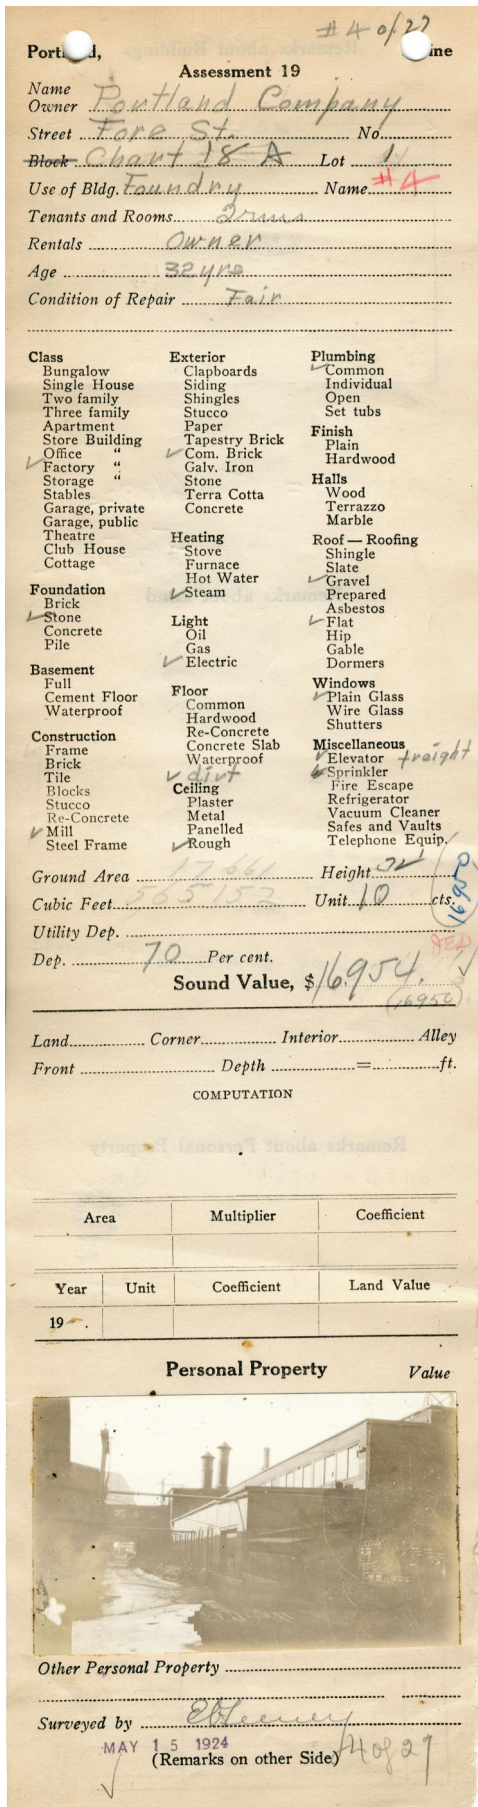 # 4 of 27
Portland, ine
Assessment 19
Name
Owner Portland Company
Street Fore St. No.
Block Chart 18 A Lot 1
Use of Bldg. Foundry Name #4
Tenants and Rooms 2 rms
Rentals Owner
Age 32 yrs
Condition of Repair Fair
Class
Bungalow
Single House
Two family
Three family
Apartment
Store Building
Office "
✓ Factory "
Storage "
Stables
Garage, private
Garage, public
Theatre
Club House
Cottage
Foundation
Brick
✓ Stone
Concrete
Pile
Basement
Full
Cement Floor
Waterproof
Construction
Frame
Brick
Tile
Blocks
Stucco
Re-Concrete
✓ Mill
Steel Frame
Exterior
Clapboards
Siding
Shingles
Stucco
Paper
Tapestry Brick
✓ Com. Brick
Galv. Iron
Stone
Terra Cotta
Concrete
Heating
Stove
Furnace
Hot Water
✓ Steam
Light
Oil
Gas
✓ Electric
Floor
Common
Hardwood
Re-Concrete
Concrete Slab
Waterproof
✓ dirt
Ceiling
Plaster
Metal
Panelled
✓ Rough
Plumbing
✓ Common
Individual
Open
Set tubs
Finish
Plain
Hardwood
Halls
Wood
Terrazzo
Marble
Roof — Roofing
Shingle
Slate
✓ Gravel
Prepared
Asbestos
✓ Flat
Hip
Gable
Dormers
Windows
✓ Plain Glass
Wire Glass
Shutters
Miscellaneous
✓ Elevator freight
✓ Sprinkler
Fire Escape
Refrigerator
Vacuum Cleaner
Safes and Vaults
Telephone Equip.
Ground Area 17661 Height
Cubic Feet 565152 Unit 10 cts.
16950
Utility Dep.
Dep. 70 Per cent.
Sound Value, $ 16954.
(16950)
Land Corner Interior Alley
Front Depth = ft.
COMPUTATION
Area Multiplier Coefficient
Year Unit Coefficient Land Value
19 .
Personal Property Value
Other Personal Property
Surveyed by
MAY 15 1924
(Remarks on other Side) 4 of 27